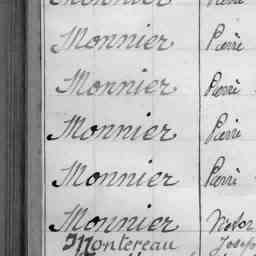 Monnier Pierre
Monnier Pierre
Monnier Pierre
Monnier Pierre
Monnier Pierre
Monnier
Montereau Joseph